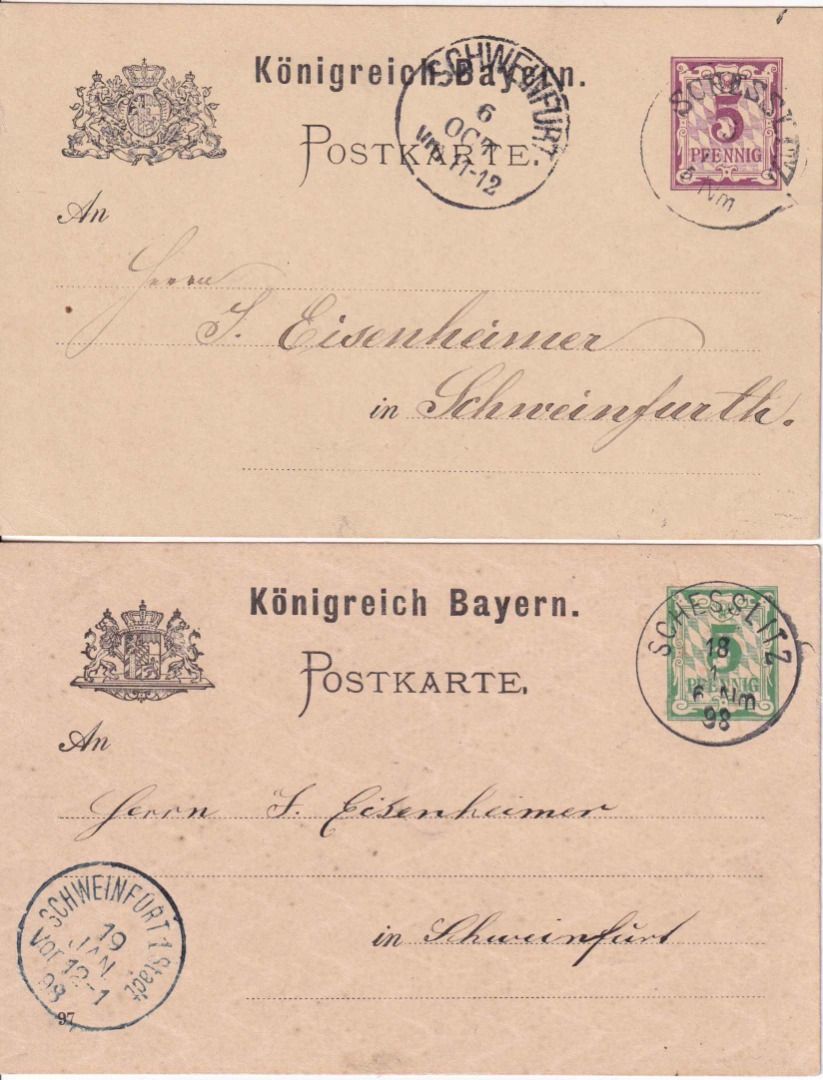 Königreich Bayern.
SCHWEINFURT
6
OCT
11-12
5
PFENNIG
Nm
POSTKARTE.
An
Herrn
J. Eisenheimer
in Schweinfurth.
Königreich Bayern.
SCHESSLITZ
18
1
6 Nm
98
5
PFENNIG
POSTKARTE.
An
Herrn J. Eisenheimer
in Schweinfurt
SCHWEINFURT 1 Stadt
19
JAN.
Vor. 12-1
98
97